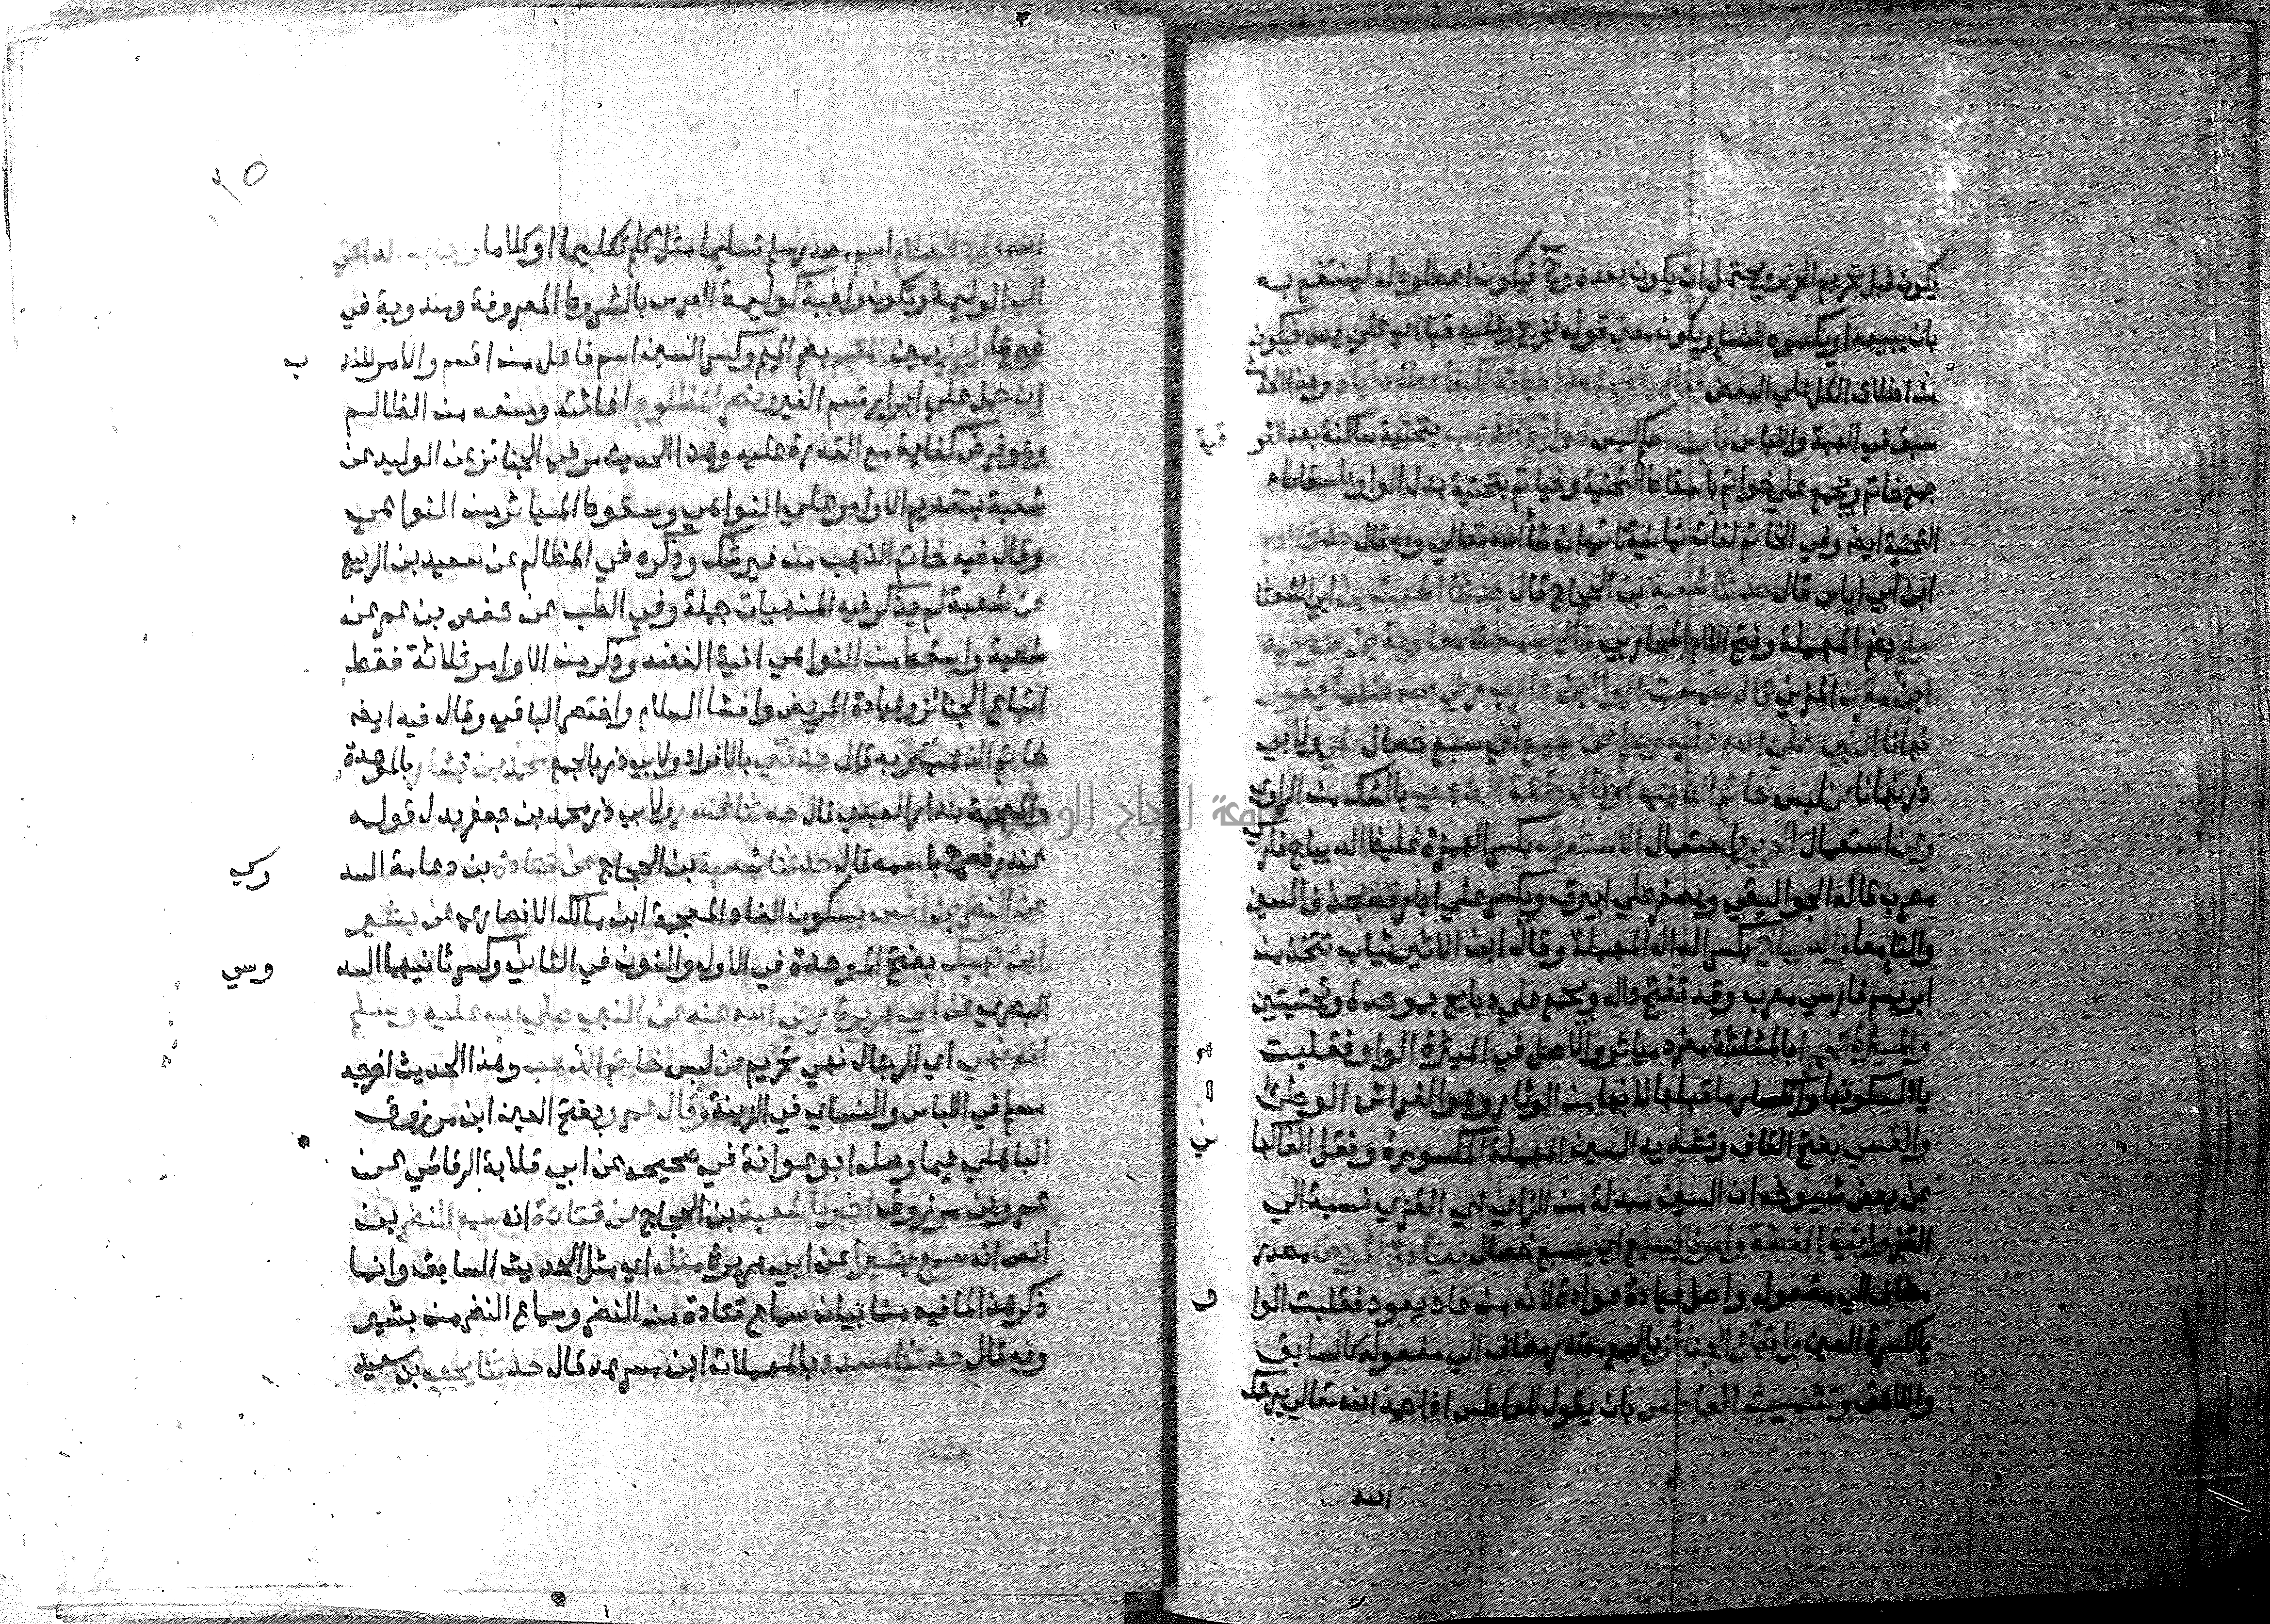 يكون قبل تحريم الحرير ويحتمل ان يكون بعده وح فيكون اعطاوه له لينتفع به
بان يبيعه او يكسوه للنساء ويكون معني قوله فخرج وعليه قبا اي علي يده فيكون
من اطلاق الكل علي البعض فقال يا مخرمة هذا خباته لك فاعطاه اياه وهذا الحديث
سبق في الهبة واللباس باب حكم لبس خواتيم الذهب بتحتية ساكنة بعد الفوقية
جمع خاتم ويجمع علي خواتم باسقاط التحتية وخياتم بتحتية بدل الواو باسقاط
التحتية ايضا وفي الخاتم لغات ثمانية تاتي ان شا الله تعالي وبه قال حدثنا ادم
ابن ابي اياس قال حدثنا شعبة بن الحجاج قال حدثنا اشعث بن ابي الشعثا
سليم بضم المهملة وفتح اللام المحاربي قال سمعت معاوية بن سويد
ابن مقرن المزني قال سمعت البرا ابن عازب رضي الله عنهما يقول
نهانا النبي صلي الله عليه وسلم عن سبع اي سبع خصال نهي ولابي
ذر نهانا عن لبس خاتم الذهب او قال حلقة الذهب بالشك من الراوي
وعن استعمال الحرير واستعمال الاستبرق بكسر الهمزة غليظ الديباج فارسي
معرب قاله الجواليقي ويصغر علي ابيرق ويكسر علي ابارق بحذف السين
والتا معا والديباج بكسر الدال المهملة وقال ابن الاثير ثياب تتخذ من
ابريسم فارسي معرب وقد تفتح داله ويجمع علي دبابيج بموحدة وتحتيتين
والميثرة الحمرا بالمثلثة مفرد مياثر والاصل في الميثرة الواو فقلبت
يا لسكونها وانكسار ما قبلها لانها من الوثار وهو الفراش الوطئ
والقسي بفتح القاف وتشديد السين المهملة المكسورة ونقل الفاكهاني
عن بعض شيوخه ان السين مبدلة من الزاي اي القزي نسبة الي
القز وانية الفضة وامرنا بسبع اي بسبع خصال بعيادة المريض مصدر
مضاف الي مفعوله واصل عيادة عوادة لانه من عاد يعود فقلبت الواو
يا لكسرة العين واتباع الجنائز بالجر مصدر مضاف الي مفعوله كالسابق
واللاحق وتشميت العاطس بان يقول للعاطس اذا حمد الله تعالي يرحمك
الله
٢٥
الله ورد السلام اسم مصدر سلم تسليما مثل كلم تكليما او كلاما الداعي
الي الوليمة وتكون واجبة كوليمة العرس بالشروط المعروفة ومندوبة في
غيرها وابرار يمين المقسم بضم الميم وكسر السين اسم فاعل من اقسم والامر للندب
ان حمل علي ابرار قسم الغير ونصر المظلوم اغاثته ومنعه من الظالم
وهو فرض كفاية مع القدرة عليه وهذا الحديث مر في الجنائز عن الوليد عن
شعبة بتقديم الاوامر علي النواهي وسقوط المياثر من النواهي
وقال فيه خاتم الذهب من غير شك وذكره في المظالم عن سعيد بن الربيع
عن شعبة لم يذكر فيه المنهيات جملة وفي الطب عن حفص بن عمر عن
شعبة واسقط من النواهي انية الفضه وذكر من الاوامر ثلاثة فقط
اتباع الجنائز وعيادة المريض وافشا السلام واختصر الباقي وقال فيه ايضا
خاتم الذهب وبه قال حدثني بالافراد ولابي ذر بالجمع محمد بن بشار بالموحدة
والمعجمة بندار العبدي قال حدثنا غندر ولابي ذر محمد بن جعفر بدل قوله
غندر فصرح باسمه قال حدثنا شعبة بن الحجاج عن قتادة بن دعامة السدوسي
عن النضر بن انس بسكون الضاد المعجمة ابن مالك الانصاري عن بشير
ابن نهيك بفتح الموحدة في الاول والنون في الثاني وكسر ثانيهما السدوسي
البصري عن ابي هريرة رضي الله عنه عن النبي صلي الله عليه وسلم
انه نهي اي الرجال نهي تحريم عن لبس خاتم الذهب وهذا الحديث اخرجه
مسلم في اللباس والنساي في الزينة وقال عمرو بفتح العين ابن مرزوق
الباهلي فيما وصله ابو عوانة في صحيحه عن ابي قلابة الرقاشي عن
عمرو بن مرزوق اخبرنا شعبة بن الحجاج عن قتادة انه سمع النضر بن
انس انه سمع بشيرا عن ابي هريرة مثله اي مثل الحديث السابق وانما
ذكر هذا لما فيه من بيان سماع قتادة من النضر وسماع النضر من بشير
وبه قال حدثنا مسدد بالمهملات ابن مسرهد قال حدثنا يحيي بن سعيد